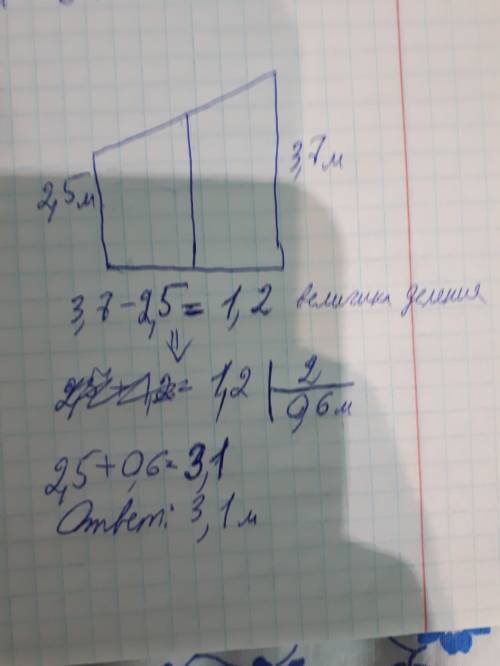 2,5м
3,7м
3,7-2,5=1,2 величина деления
⇓
= 1,2 | 2
0,6м
2,5+0,6=3,1
Ответ: 3,1м